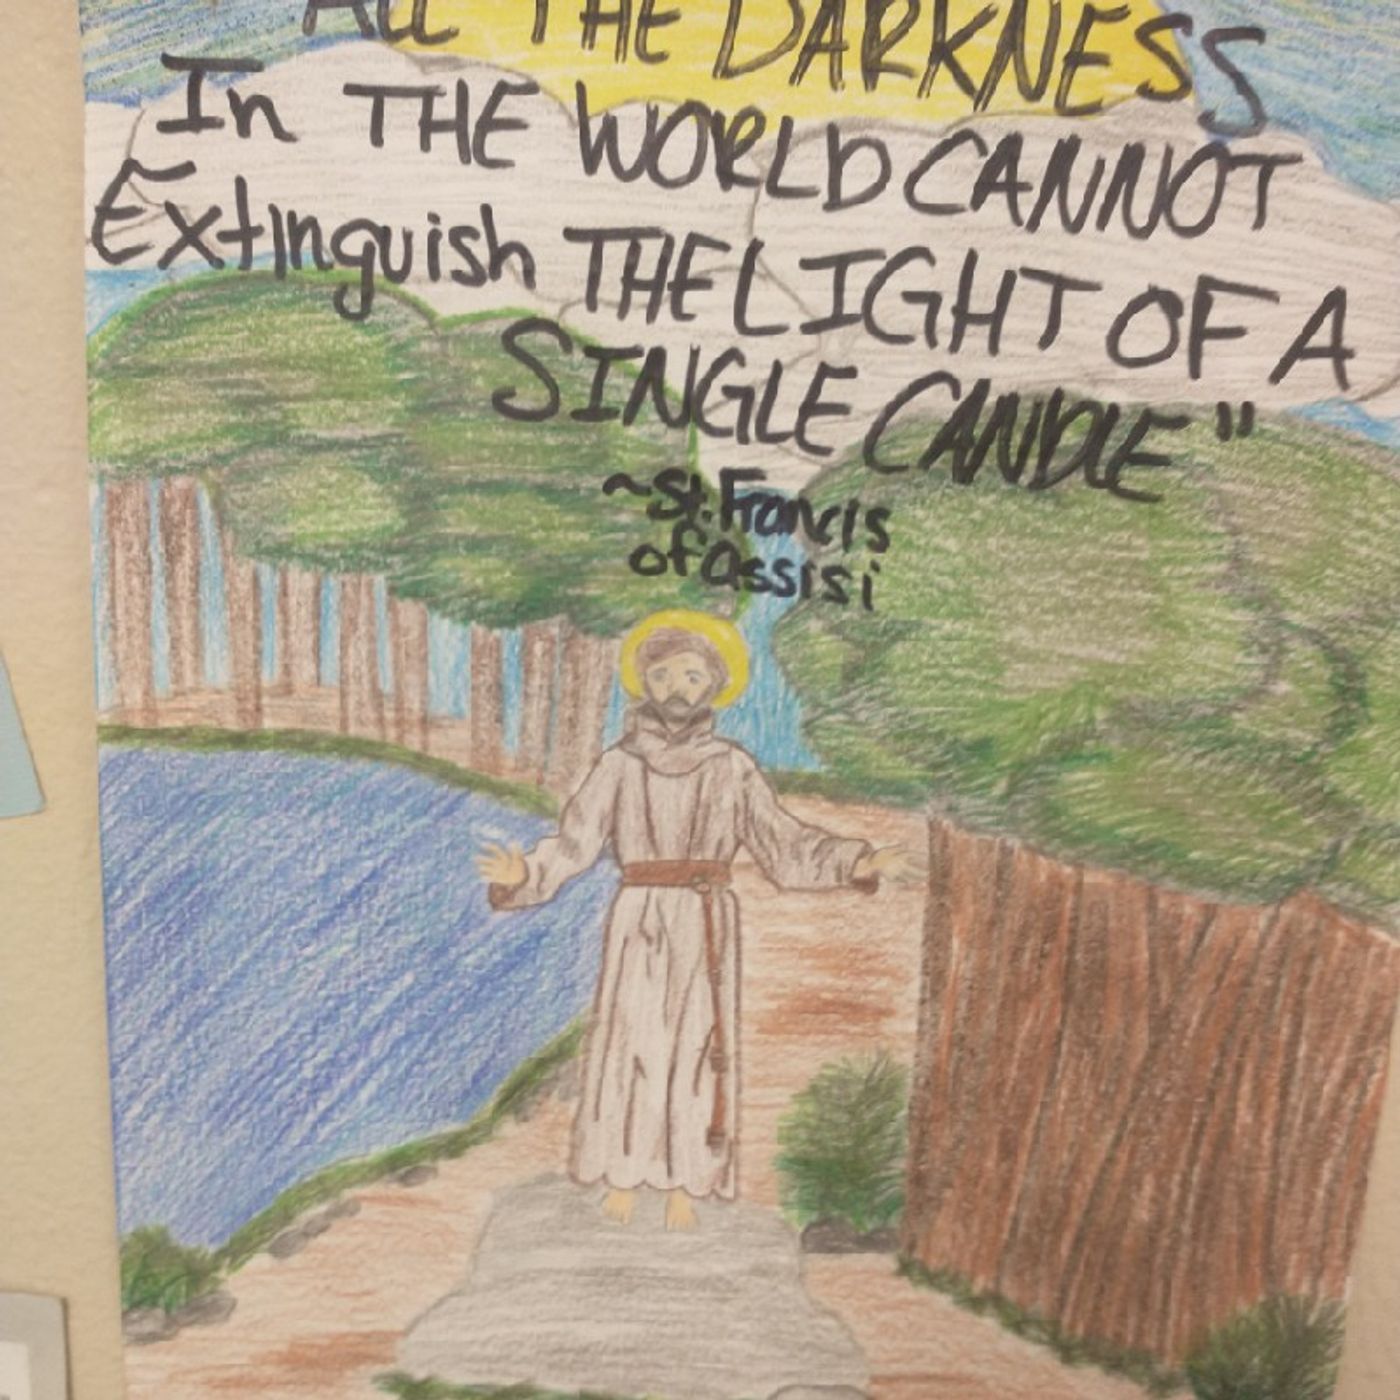 ALL THE DARKNESS
In THE WORLD CANNOT
Extinguish THE LIGHT OF A
SINGLE CANDLE"
~St. Francis
of Assisi